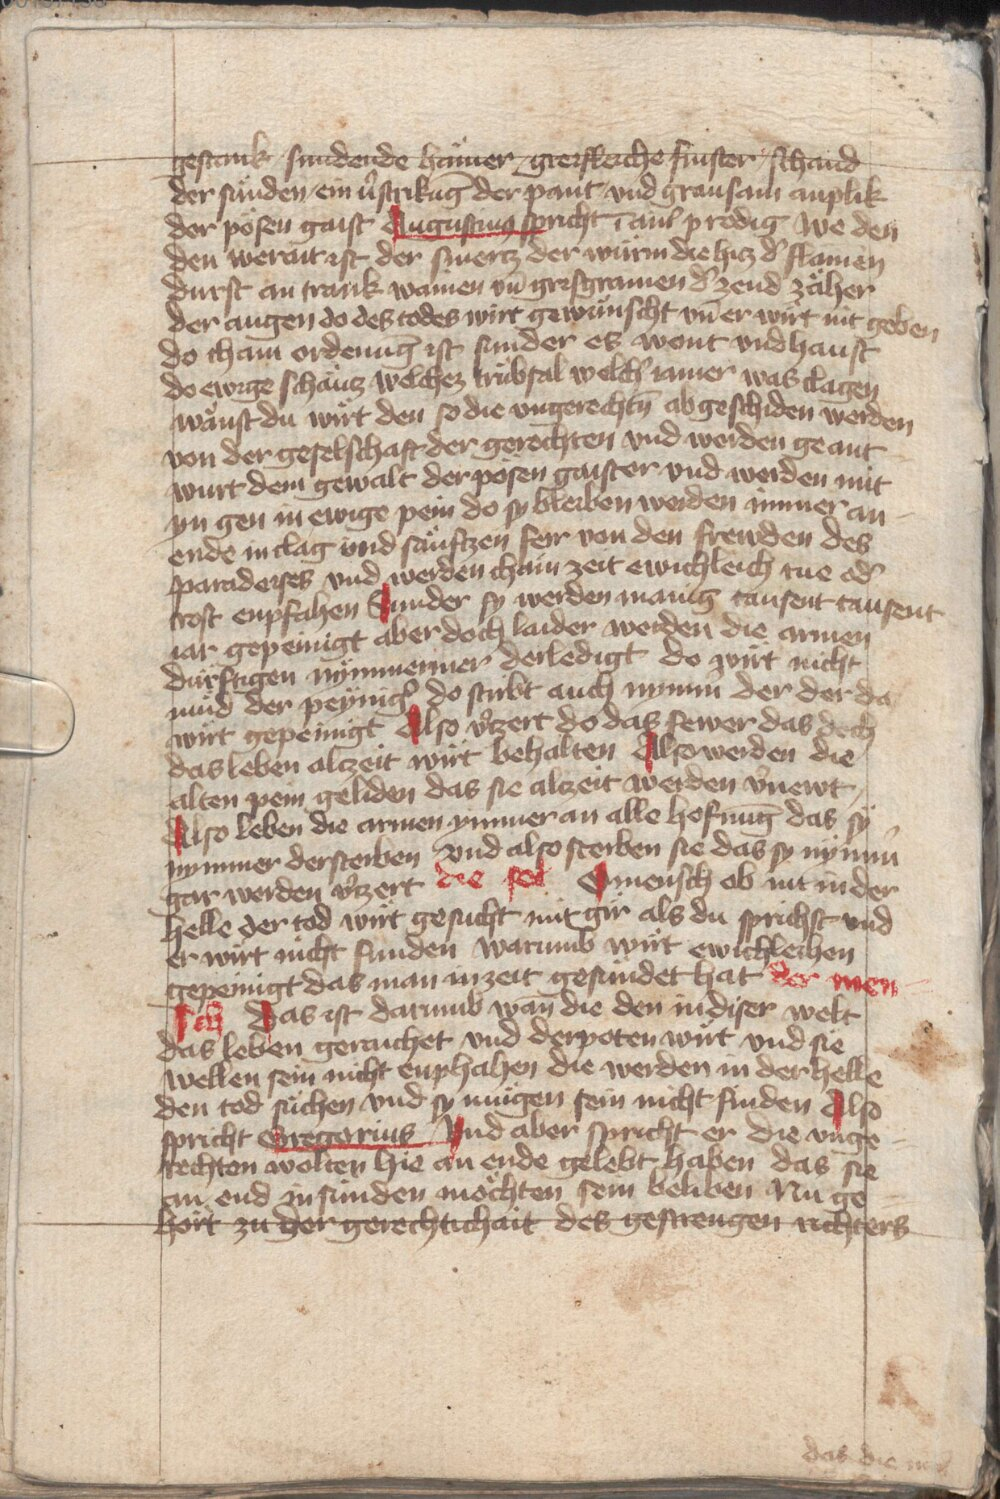 gestank smidende hämer greifleiche finster schand
der sünden ein v̓strikūg der pant vnd grausam anplik
der pösen gaist Augustinus spricht ī ainer predig We den
den werait ist der smertz der würm die hicz d̓ flamen
durst an trank wainen vn̄ grisgramen d̓ zend zäher
der augen do des todes wirt gewünscht vn̄ er wirt nit geben
do chain ordenūg ist sunder es wont vnd haust
do ewige schäutz welchez trübsal welch̓ iamer was clagen
wänst du wirt den so die vngerechtn̄ ab geschiden werden
von der geselschaft der gerechten vnd werden geant
wurt dem gewalt der pösen gaister vnd werden mit
yn gen in ewige pein do sy bleiben werden immer an
ende in clag vnd säuftzen ferr von den frewden des
paradeises vnd werden chain zeit ewichleich rue od̓
trost enpfahen Sunder sy werden manig tausent tausent
iar gepeinigt aber doch laider werden die armen
dürftigen nymmermer derledigt do wirt nicht
müd der peynig̓ do stirbt auch nymm̄ der der da
wirt gepeinigt Also v̓zert do das fewer das dech
das leben alczeit wirt behalten Also werden die
alten pein geliden das sie alczeit werden v̓newt
Also leben die armen ymmer an alle hofnūg das sy
nymmer dersterben vnd also sterben sie das sy nymm̄
gar werden v̓zert die sel O mensch ob nit in der
helle der tod wirt gesucht mit gir als du sprichst vnd
er wirt nicht funden warumb wirt ewichleichen
gepeinigt das man in zeit gesündet hat der men
sch Das ist darumb wan̄ die den in diser welt
das leben geraichet vnd derpoten wirt vnd sie
wellen sein nicht enphahen die werden in der helle
den tod süchen vnd sy mügen sein nicht finden Also
spricht Gregorius Vnd aber spricht er die vnge
rechten wolten hie an ende gelebt haben das sie
an end in sünden möchten sein beliben Nu ge
hört zu der gerechtichait des gestrengen richters
das die